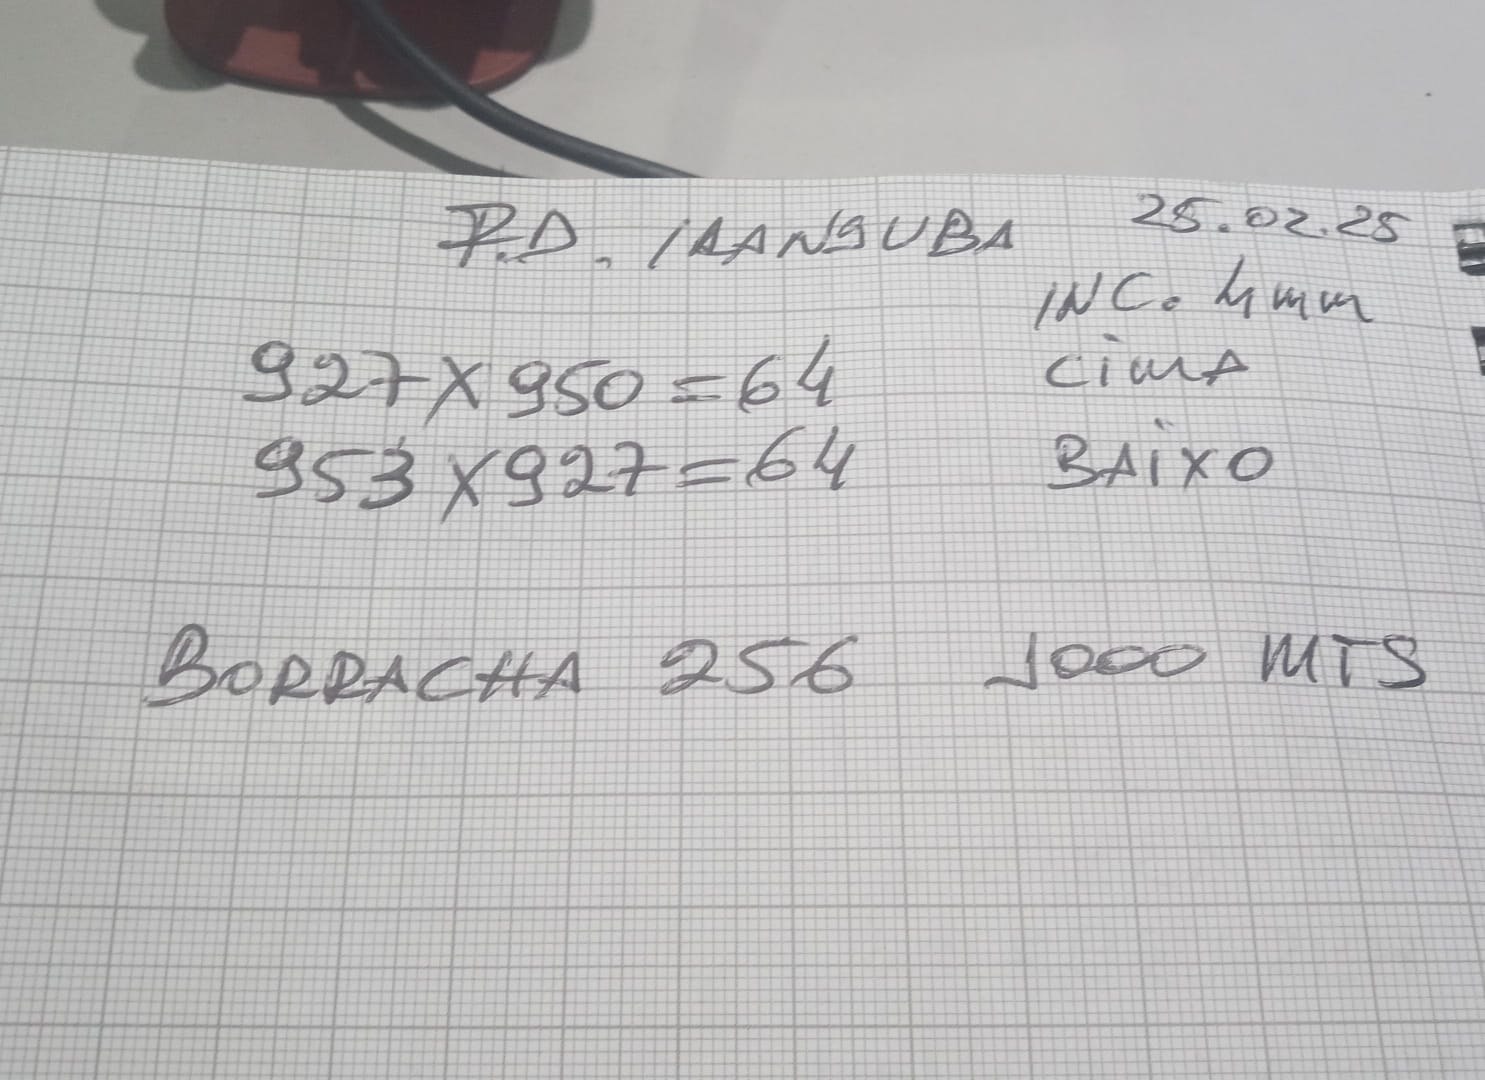 P.D. IRANGUBA 25.02.25
INC. 4mm
927 X 950 = 64 CIMA
953 X 927 = 64 BAIXO
BORRACHA 256 1000 MTS